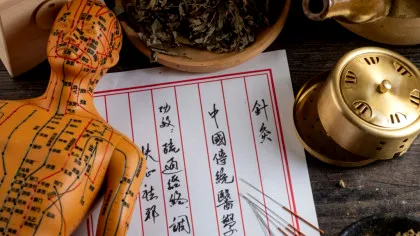 針灸
中國傳統醫學
功效：疏通經絡、調
扶正祛邪